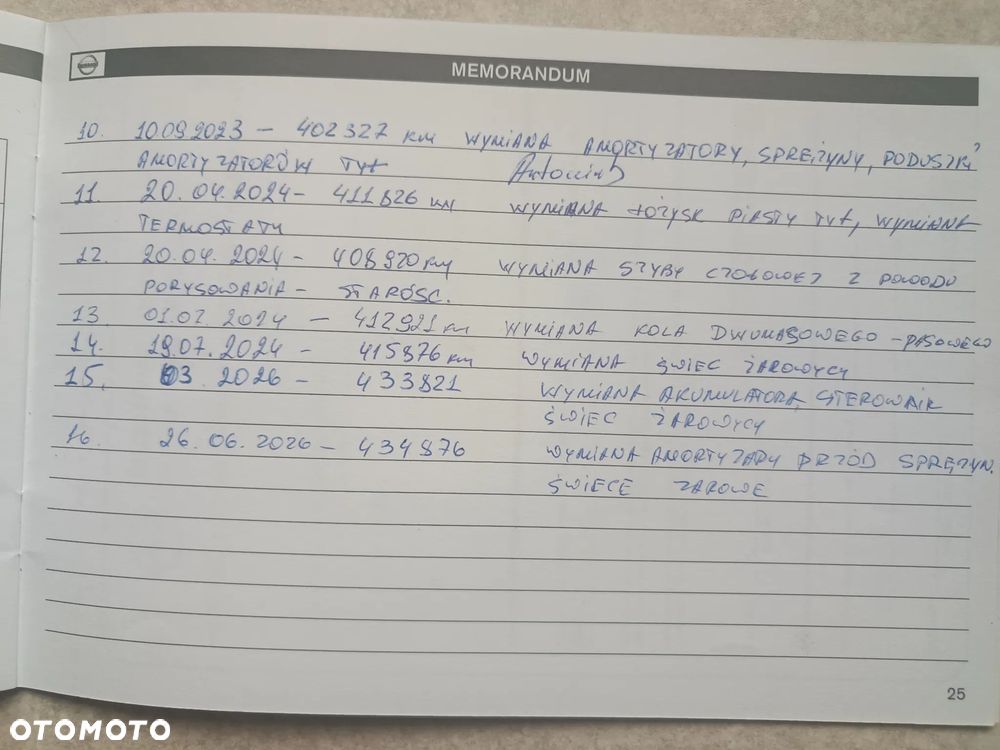 NISSAN
MEMORANDUM
10. 10.09.2023 – 402327 km WYMIANA AMORTYZATORY, SPRĘŻYNY, PODUSZKI
AMORTYZATORÓW TYŁ
11. 20.04.2024 – 411826 km WYMIANA ŁOŻYSK PIASTY TYŁ, WYMIANA
TERMOSTATU
12. 20.04.2024 – 408920 km WYMIANA SZYBY CZOŁOWEJ Z POWODU
PORYSOWANIA – STAROŚĆ.
13. 01.07.2024 – 412921 km WYMIANA KOLA DWUMASOWEGO – PASOWEGO
14. 19.07.2024 – 415876 km WYMIANA ŚWIEC ŻAROWYCY
15. 03.2026 – 433821 WYMIANA AKUMULATORA, STEROWNIK
ŚWIEC ŻAROWYCY
16. 26.06.2026 – 434876 WYMIANA AMORTYZARY PRZÓD SPRĘŻYN.
ŚWIECE ŻAROWE
25
OTOMOTO